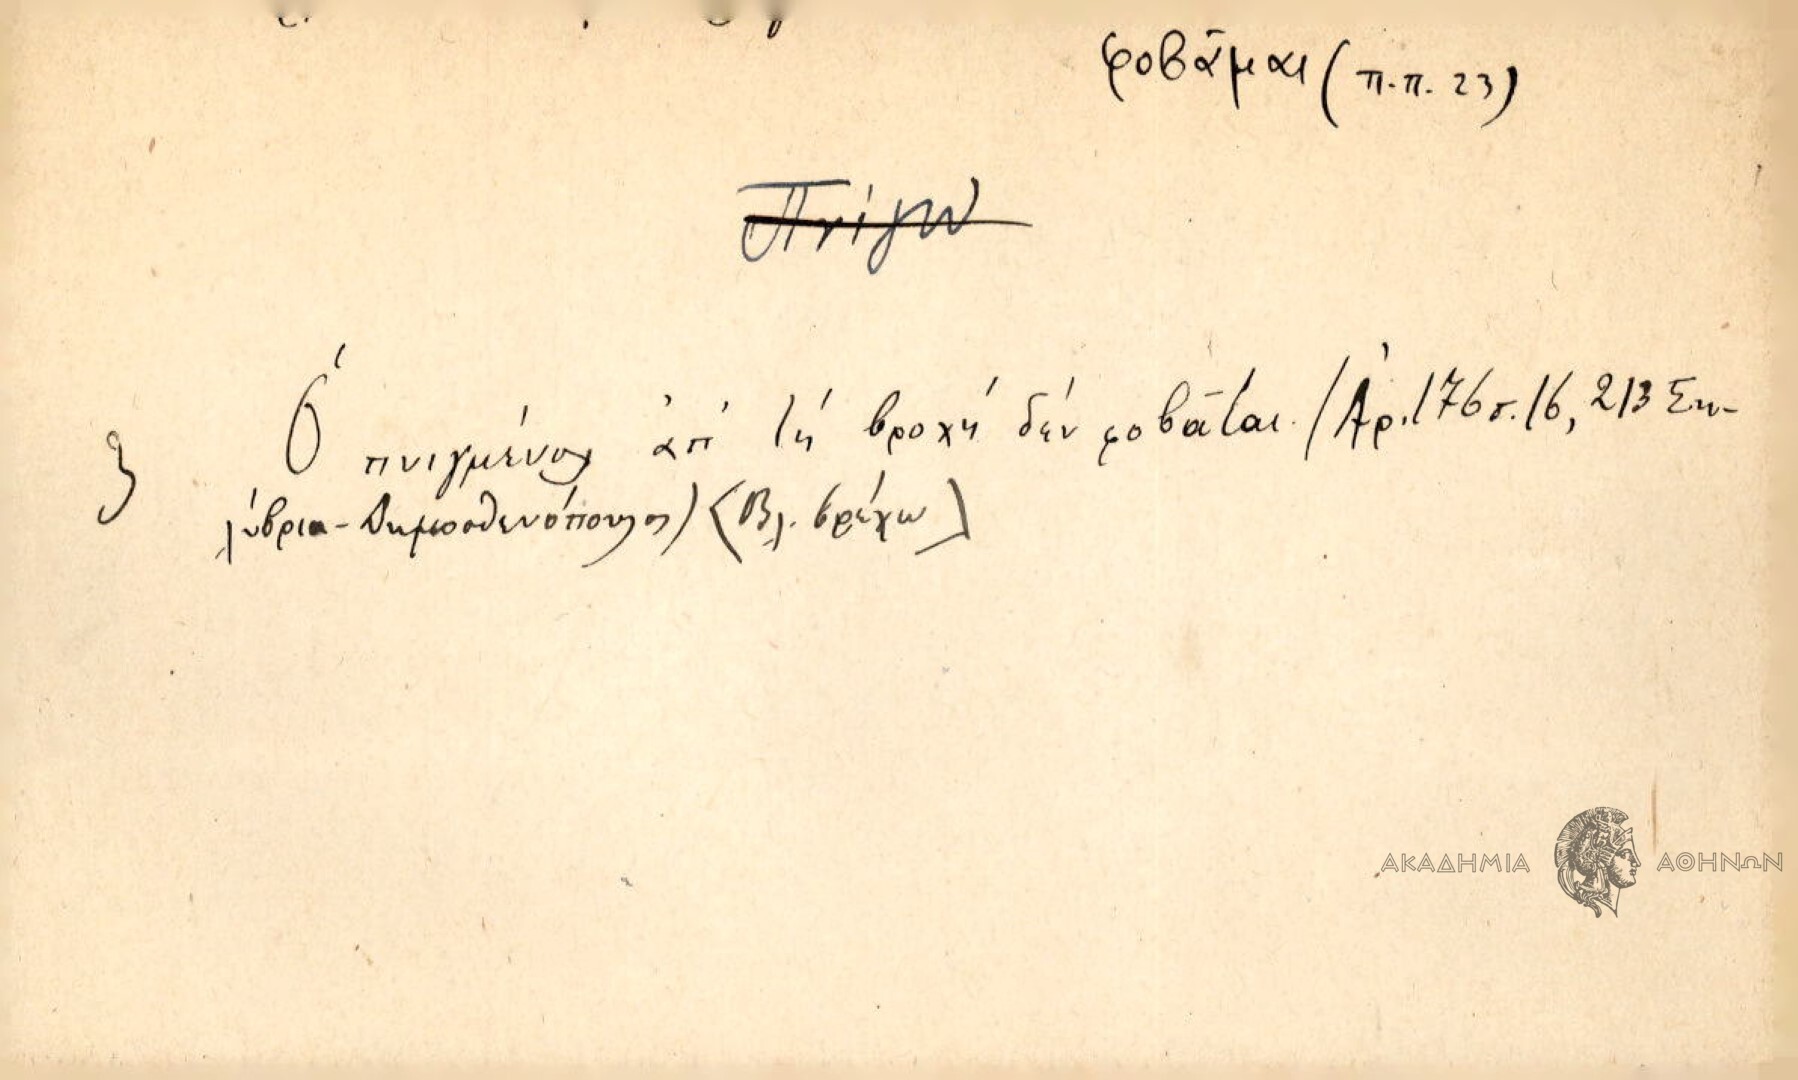 φοβᾶμαι (π.π. 23)
Πνίγω
Ὁ πνιγμένος ἀπ' τή βροχή δέν φοβᾶται. (Ἀρ. 176 σ. 16, 213 Ση-
λύβρια - Δημοσθενόπουλος) (Βλ. βρέχω)
3
ΑΚΑΔΗΜΙΑ ΑΘΗΝΩΝ